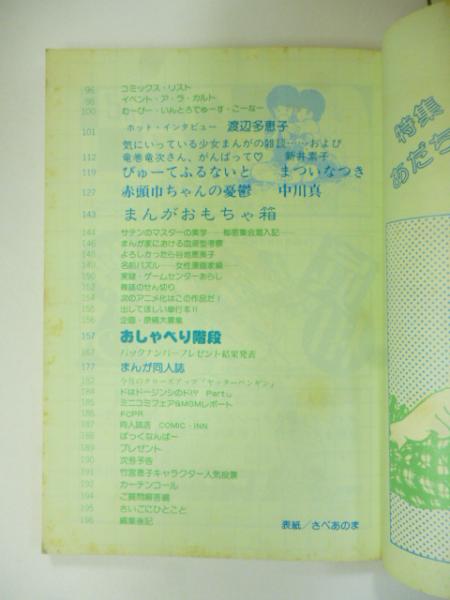 96 コミックス・リスト
98 イベント・ア・ラ・カルト
100 むーびー・いんとろでゅーす・こーなー
101 ホット・インタビュー 渡辺多恵子
気にいっている少女まんがの雑談……および
112 竜巻竜次さん、がんばって♡ 新井素子
119 びゅーてふるないと まついなつき
127 赤頭巾ちゃんの憂鬱 中川真
143 まんがおもちゃ箱
144 サテンのマスターの美学──秘密集会潜入記──
146 まんが家における血液型考察
148 よろしかったら谷地恵美子
149 名前パズル──女性漫画家編──
150 実録・ゲームセンターあらし
152 雑誌のせん切り
154 次のアニメ化はこの作品だ!
155 出してほしい単行本!!
156 企画・原稿大募集
157 おしゃべり階段
167 バックナンバープレゼント結果発表
177 まんが同人誌
182 今月のクローズアップ「ヤッターペンギン」
184 ドはドージンシのド!Y Part
185 ミニコミフェア&MGMレポート
186 FCPR
187 同人誌店 COMIC・INN
188 ばっくなんばー
189 プレゼント
190 次号予告
191 竹宮恵子キャラクター人気投票
192 カーテンコール
194 ご質問解答編
195 ちいごにひとこと
196 編集後記
表紙/さべあのま
特集
あだち